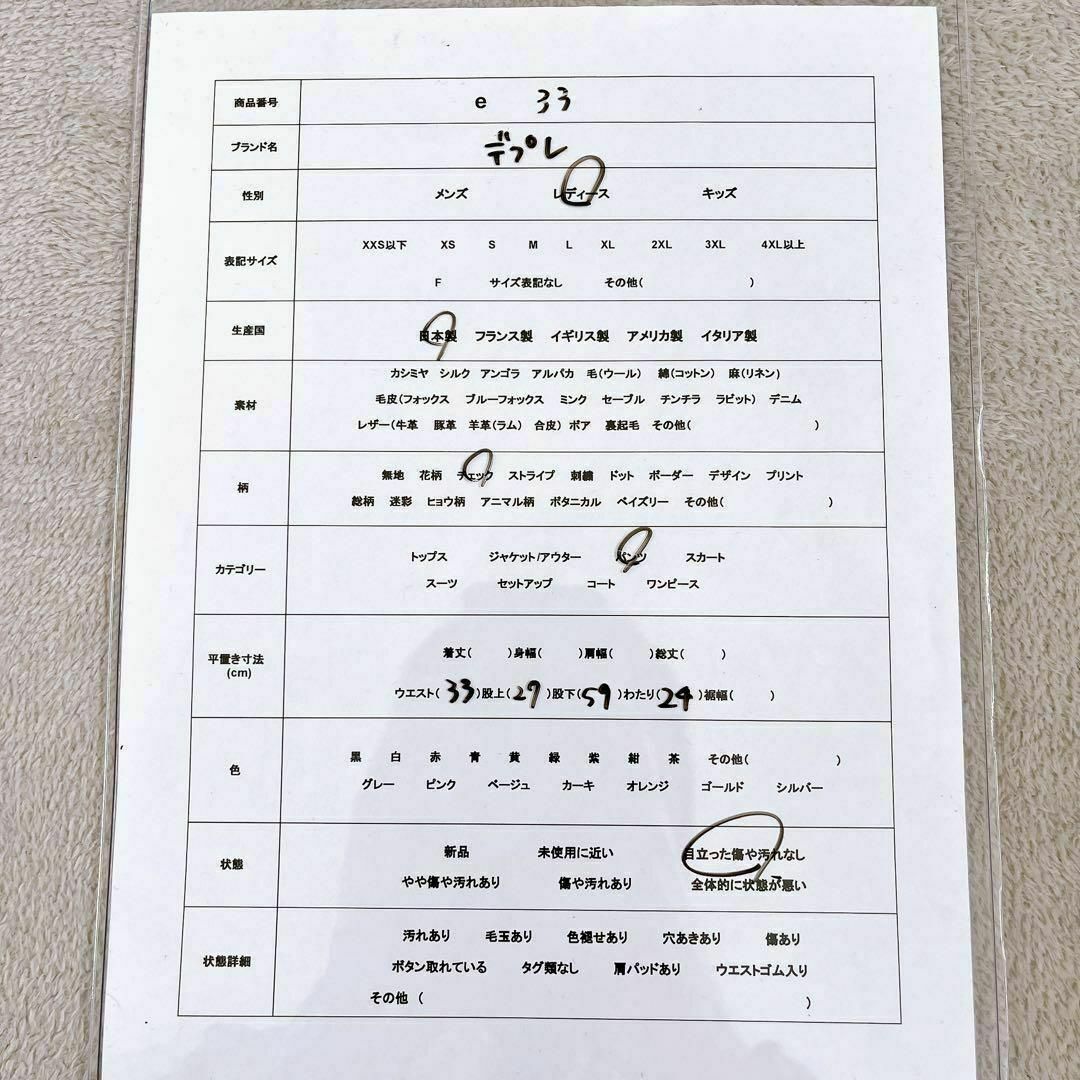 商品番号 e 33
ブランド名 デプレ
性別 メンズ レディース キッズ
XXS以下 XS S M L XL 2XL 3XL 4XL以上
表記サイズ
F サイズ表記なし その他( )
生産国 日本製 フランス製 イギリス製 アメリカ製 イタリア製
カシミヤ シルク アンゴラ アルパカ 毛(ウール) 綿(コットン) 麻(リネン)
素材 毛皮(フォックス ブルーフォックス ミンク セーブル チンチラ ラビット) デニム
レザー(牛革 豚革 羊革(ラム) 合皮) ボア 裏起毛 その他( )
無地 花柄 チェック ストライプ 刺繍 ドット ボーダー デザイン プリント
柄
総柄 迷彩 ヒョウ柄 アニマル柄 ボタニカル ペイズリー その他( )
トップス ジャケット/アウター パンツ スカート
カテゴリー
スーツ セットアップ コート ワンピース
着丈( )身幅( )肩幅( )総丈( )
平置き寸法
(cm)
ウエスト(33)股上(29)股下(59)わたり(24)裾幅( )
黒 白 赤 青 黄 緑 紫 紺 茶 その他( )
色
グレー ピンク ベージュ カーキ オレンジ ゴールド シルバー
新品 未使用に近い 目立った傷や汚れなし
状態
やや傷や汚れあり 傷や汚れあり 全体的に状態が悪い
汚れあり 毛玉あり 色褪せあり 穴あきあり 傷あり
状態詳細 ボタン取れている タグ類なし 肩パッドあり ウエストゴム入り
その他 ( )